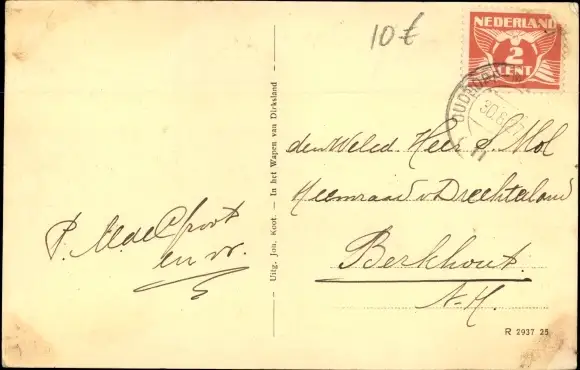 10 €
NEDERLAND
2
CENT
OUDDORP
30.8
den Weled. Heer S. Mol
Heemraad v Drechterland
Berkhout.
N.-H.
P.
en vr.
Uitg. Joh. Koot. — In het Wapen van Dirksland
R 2937 25